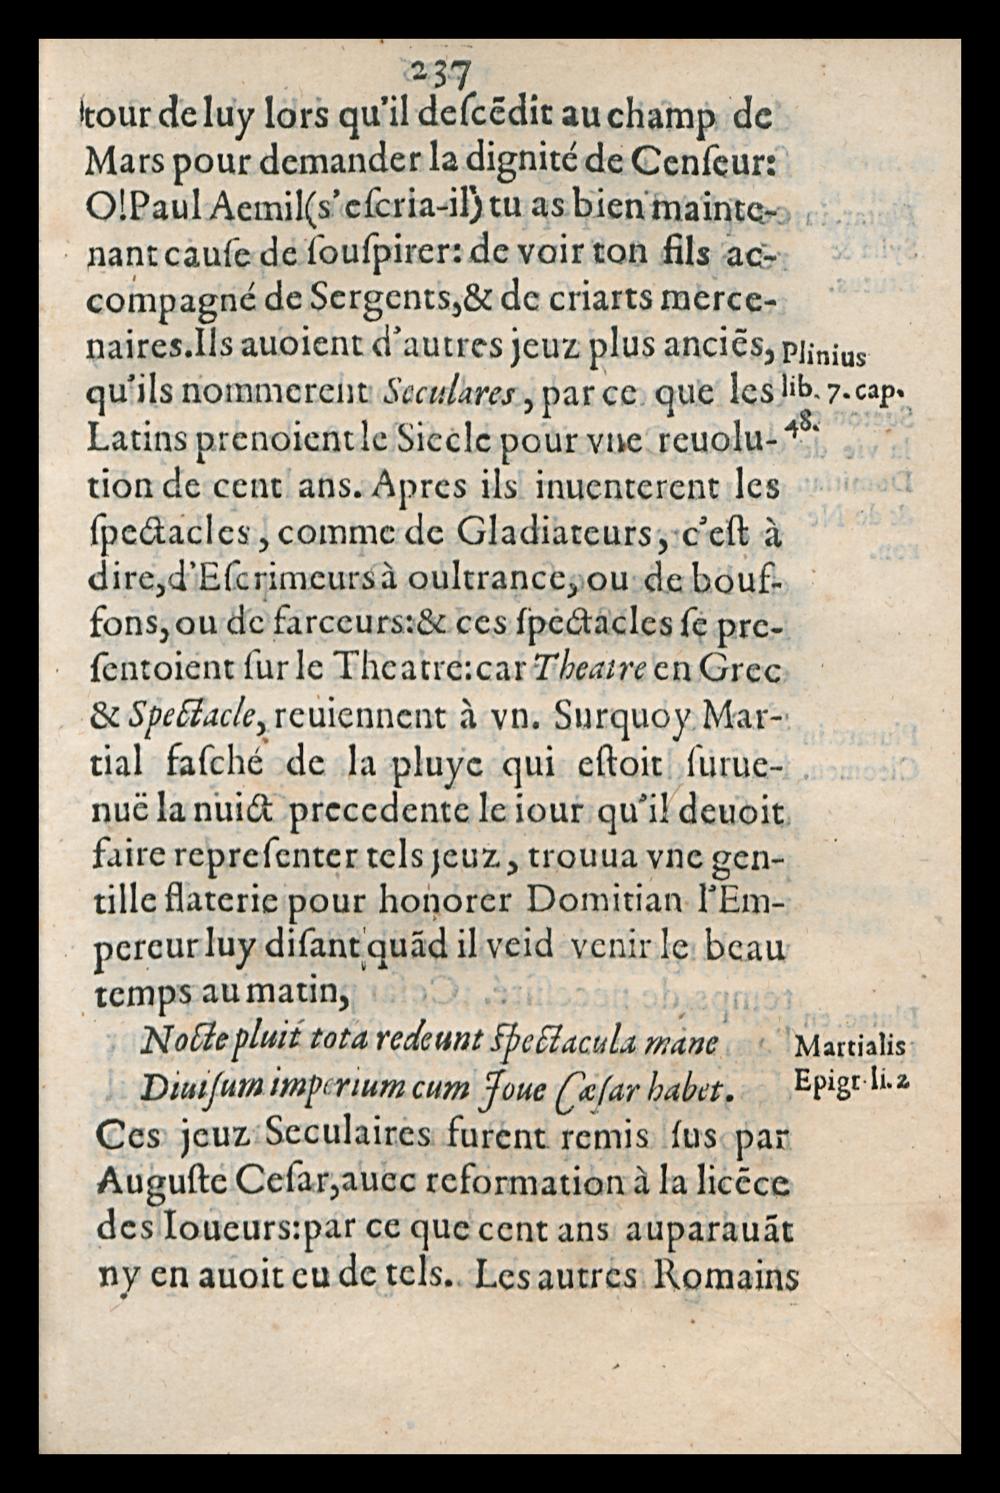 237
tour de luy lors qu'il deſcẽdit au champ de
Mars pour demander la dignité de Cenſeur:
O!Paul Aemil(s'eſcria-il) tu as bien mainte-
nant cauſe de ſouſpirer: de voir ton fils ac-
compagné de Sergents,& de criarts merce-
naires.Ils auoient d'autres jeuz plus anciẽs,
qu'ils nommerent Seculares, par ce que les
Latins prenoient le Siecle pour vne reuolu-
tion de cent ans. Apres ils inuenterent les
ſpectacles, comme de Gladiateurs, c'eſt à
dire,d'Eſcrimeurs à oultrance, ou de bouf-
fons, ou de farceurs:& ces ſpectacles ſe pre-
ſentoient ſur le Theatre:car Theatre en Grec
& Spectacle, reuiennent à vn. Surquoy Mar-
tial faſché de la pluye qui eſtoit ſurue-
nuë la nuict precedente le iour qu'il deuoit
faire repreſenter tels jeuz, trouua vne gen-
tille flaterie pour honorer Domitian l'Em-
pereur luy diſant quãd il veid venir le beau
temps au matin,
Nocte pluit tota redeunt ſpectacula mane
Diuiſum imperium cum Joue Cæſar habet.
Ces jeuz Seculaires furent remis ſus par
Auguſte Ceſar,auec reformation à la licẽce
des Ioueurs:par ce que cent ans auparauãt
ny en auoit eu de tels. Les autres Romains
Plinius
lib. 7. cap.
48.
Martialis
Epigr. li. 2